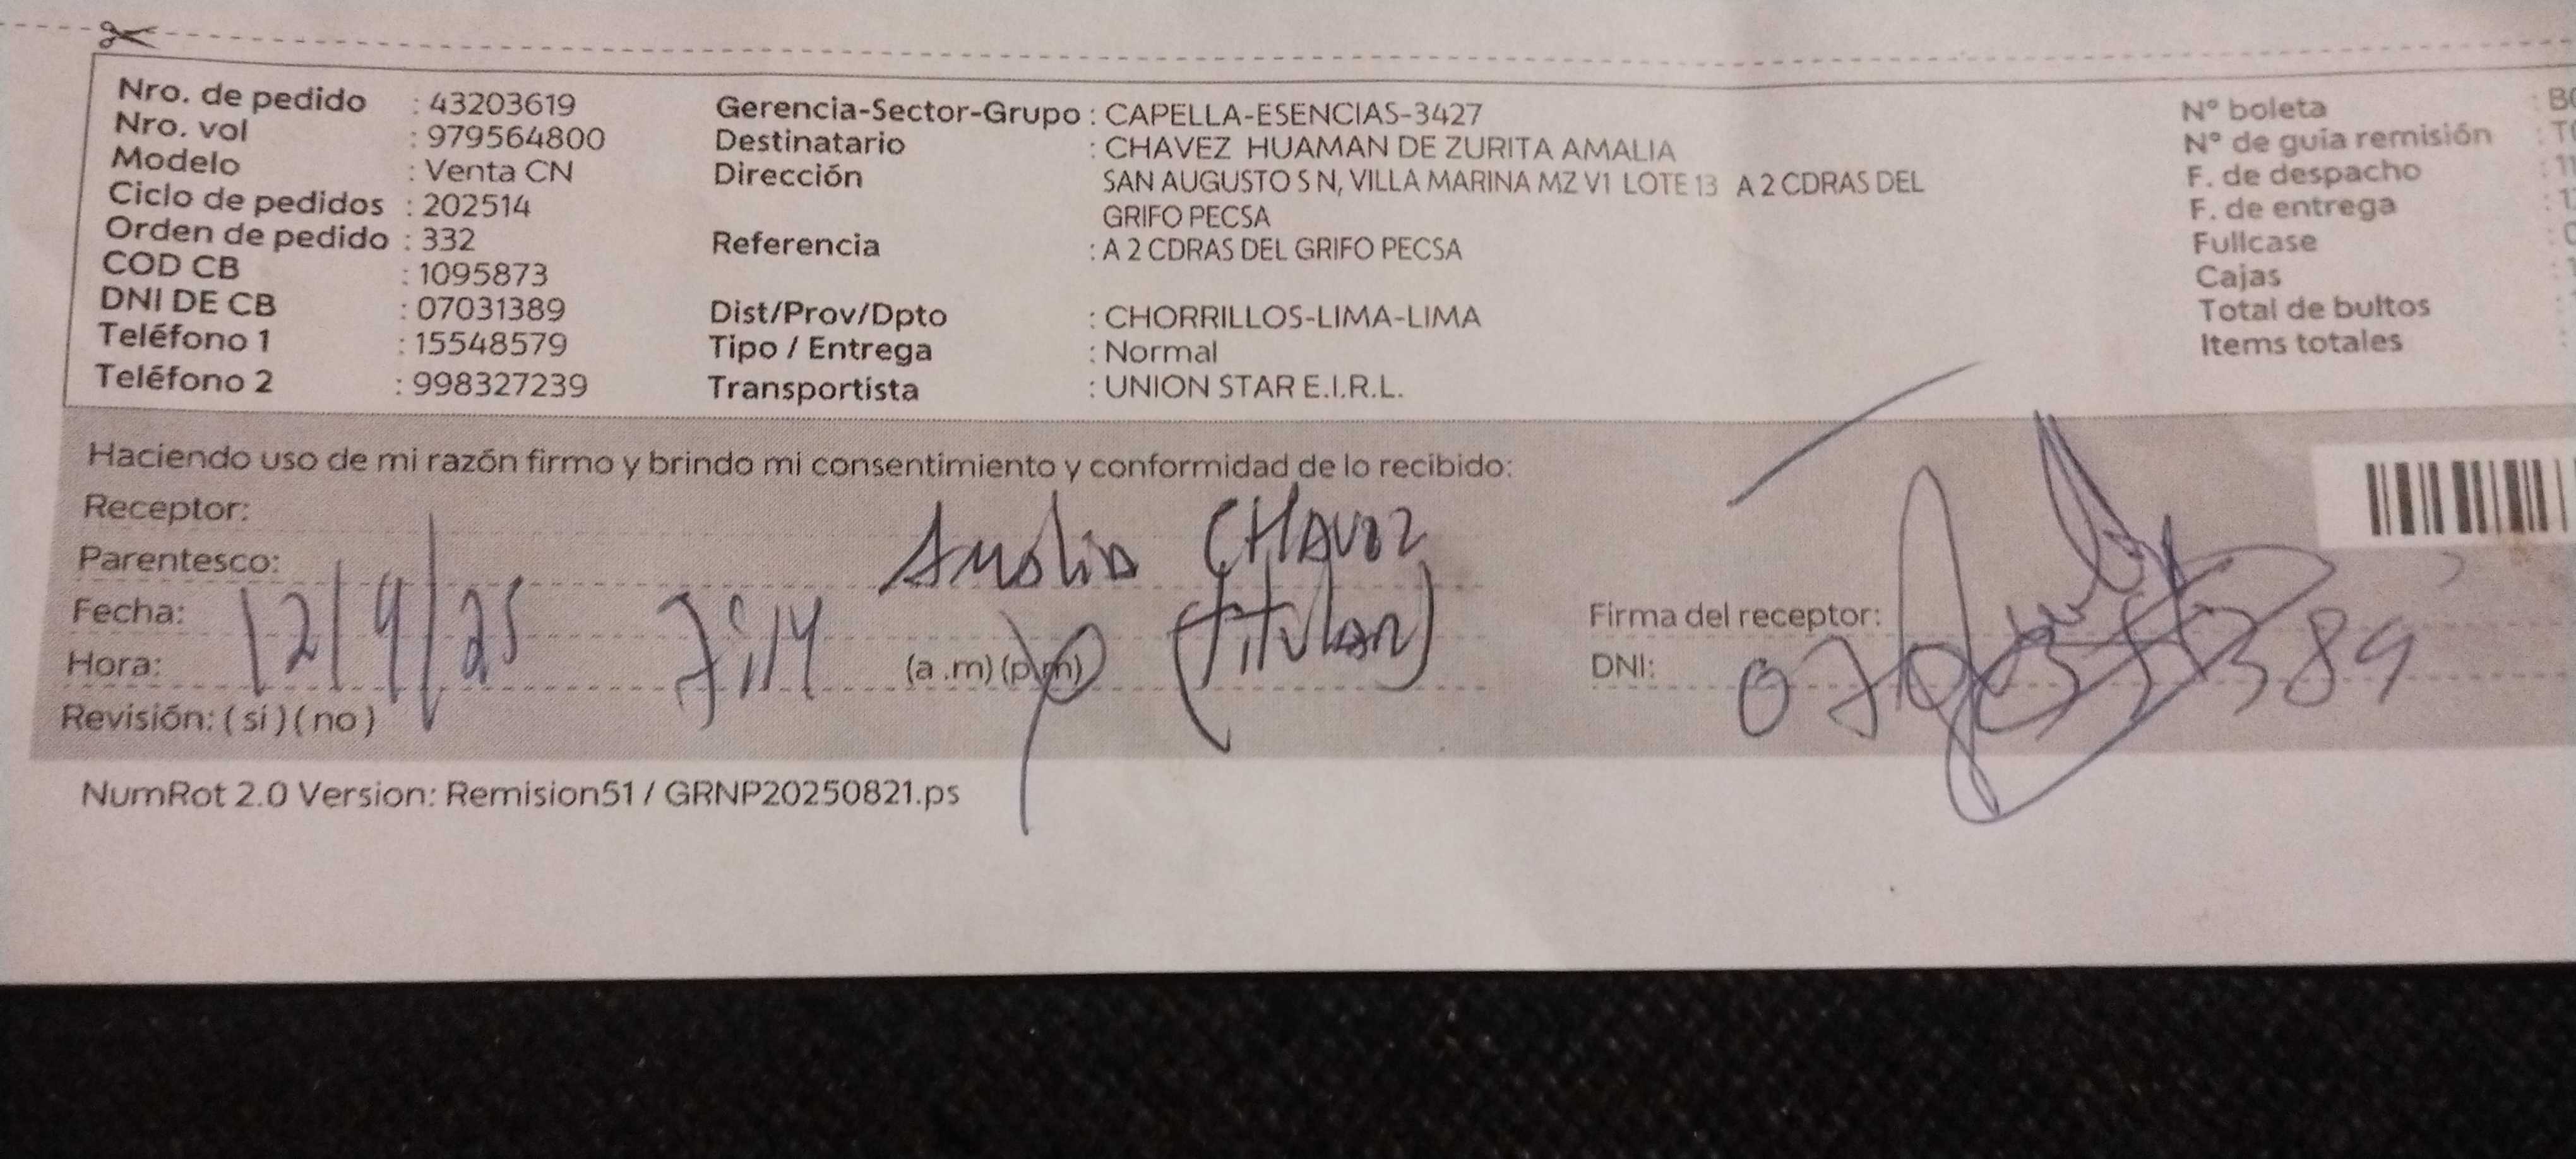 Nro. de pedido : 43203619
Nro. vol : 979564800
Modelo : Venta CN
Ciclo de pedidos : 202514
Orden de pedido : 332
COD CB : 1095873
DNI DE CB : 07031389
Teléfono 1 : 15548579
Teléfono 2 : 998327239
Gerencia-Sector-Grupo : CAPELLA-ESENCIAS-3427
Destinatario : CHAVEZ HUAMAN DE ZURITA AMALIA
Dirección SAN AUGUSTO S N, VILLA MARINA MZ V1 LOTE 13 A 2 CDRAS DEL
GRIFO PECSA
Referencia : A 2 CDRAS DEL GRIFO PECSA
Dist/Prov/Dpto : CHORRILLOS-LIMA-LIMA
Tipo / Entrega : Normal
Transportista : UNION STAR E.I.R.L.
N° boleta
N° de guía remisión
F. de despacho
F. de entrega
Fullcase
Cajas
Total de bultos
Items totales
Haciendo uso de mi razón firmo y brindo mi consentimiento y conformidad de lo recibido:
Receptor: Amalia CHAVEZ
Parentesco: (titular)
Fecha: 12/9/25
Hora: 7:14 (a .m) (p.m)
Revisión: ( si ) ( no )
Firma del receptor:
DNI: 07031389
NumRot 2.0 Version: Remision51 / GRNP20250821.ps